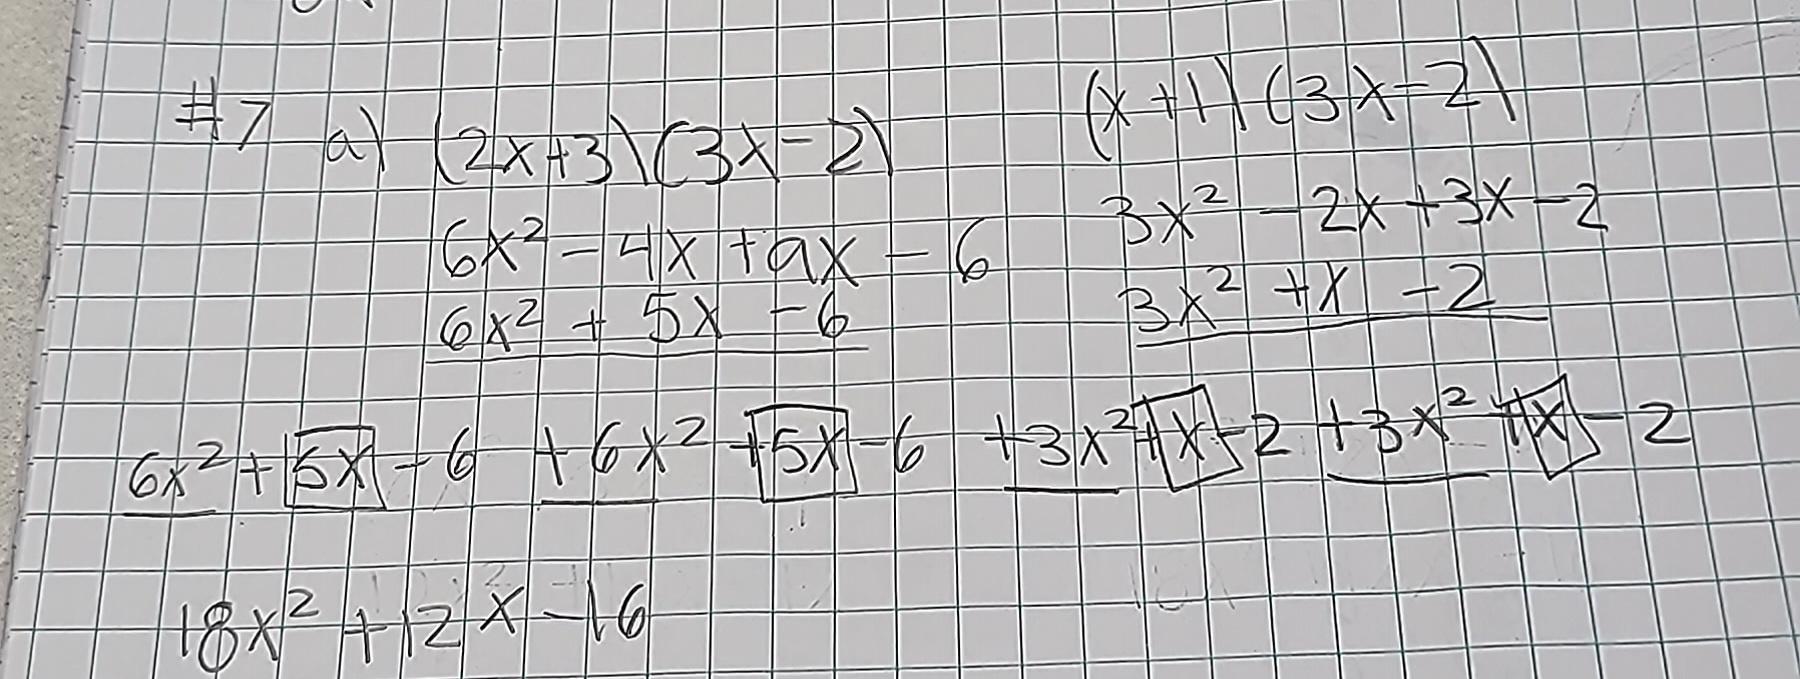 #7 a) (2x+3)(3x-2)
6x² - 4x + 9x - 6
6x² + 5x - 6
(x+1)(3x-2)
3x² - 2x + 3x - 2
3x² + x - 2
6x² + 5x - 6 + 6x² + 5x - 6 + 3x² + x - 2 + 3x² + x - 2
18x² + 12x - 16